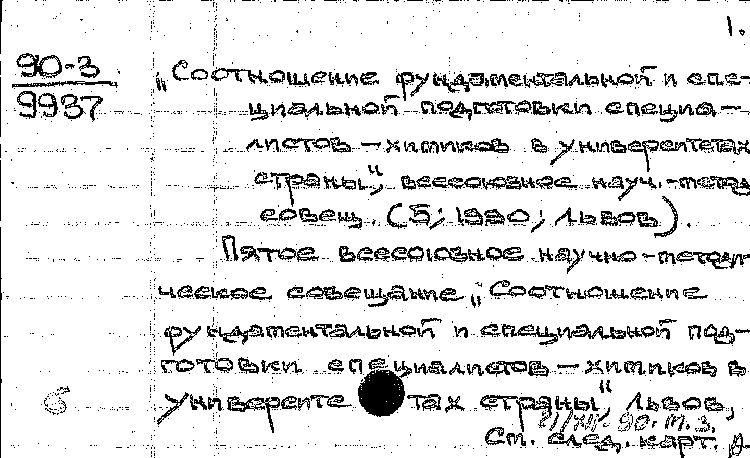 1.
90-3
9937
„Соотношение фундаментальной и спе-
циальной подготовки специа-
листов – химиков в университетах
страны“, всесоюзное науч.-метод
совещ. (5; 1990; Львов).
Пятое всесоюзное научно-методи
ческое совещание „Соотношение
фундаментальной и специальной под-
готовки специалистов – химиков в
б университе тах страны“, Львов,
90. м. з.
См. след. карт.